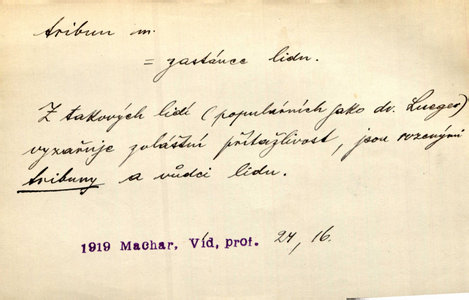 tribun m.
= zastánce lidu.
Z takových lidí (populárních jako dr. Lueger)
vyzařuje zvláštní přitažlivost, jsou rozenými
tribuny a vůdci lidu.
1919 Machar, Víd, prof. 24, 16.